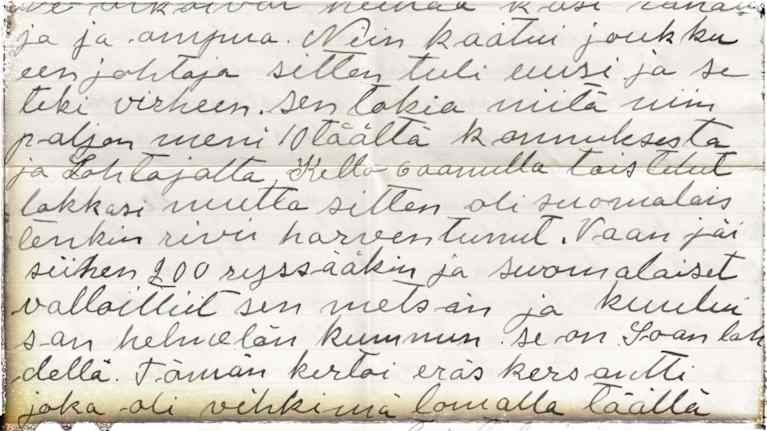 ja ja ampua. Niin kaatui joukku
een johtaja sitten tuli uusi ja se
teki virheen. sen takia niitä niin
paljon meni 10 täältä kannuksesta
ja Lohtajalta. Kello 6 aamulla taistelut
lakkasi mutta sitten oli suomalais
tenkin rivit harventunut. Vaan jäi
siihen 200 ryssääkin ja suomalaiset
valloittiit sen metsän ja kuului
san helmelän kummun. se on Soanlah
dellä. Tämän kertoi eräs kersantti
joka oli vihkimä lomalla täällä